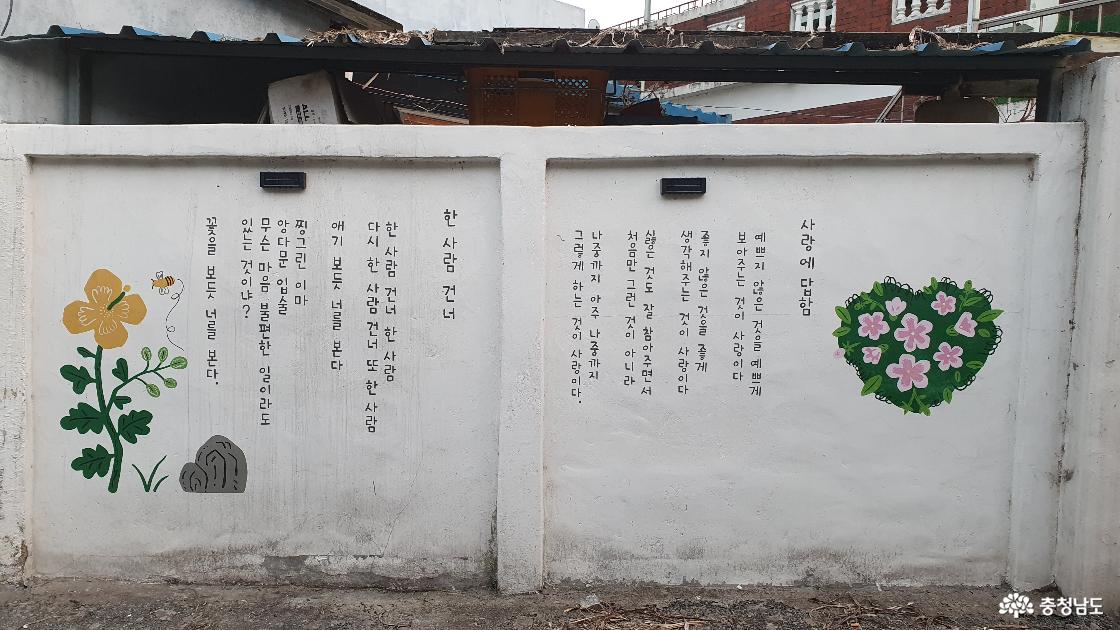 사랑에 답함
예쁘지 않은 것을 예쁘게
보아주는 것이 사랑이다
좋지 않은 것을 좋게
생각해주는 것이 사랑이다
싫은 것도 잘 참아주면서
처음만 그런 것이 아니라
나중까지 아주 나중까지
그렇게 하는 것이 사랑이다.
한 사람 건너
한 사람 건너 한 사람
다시 한 사람 건너 또 한 사람
애기 보듯 너를 본다
찡그린 이마
앙다문 입술
무슨 마음 불편한 일이라도
있는 것이냐?
꽃을 보듯 너를 본다.
충청남도